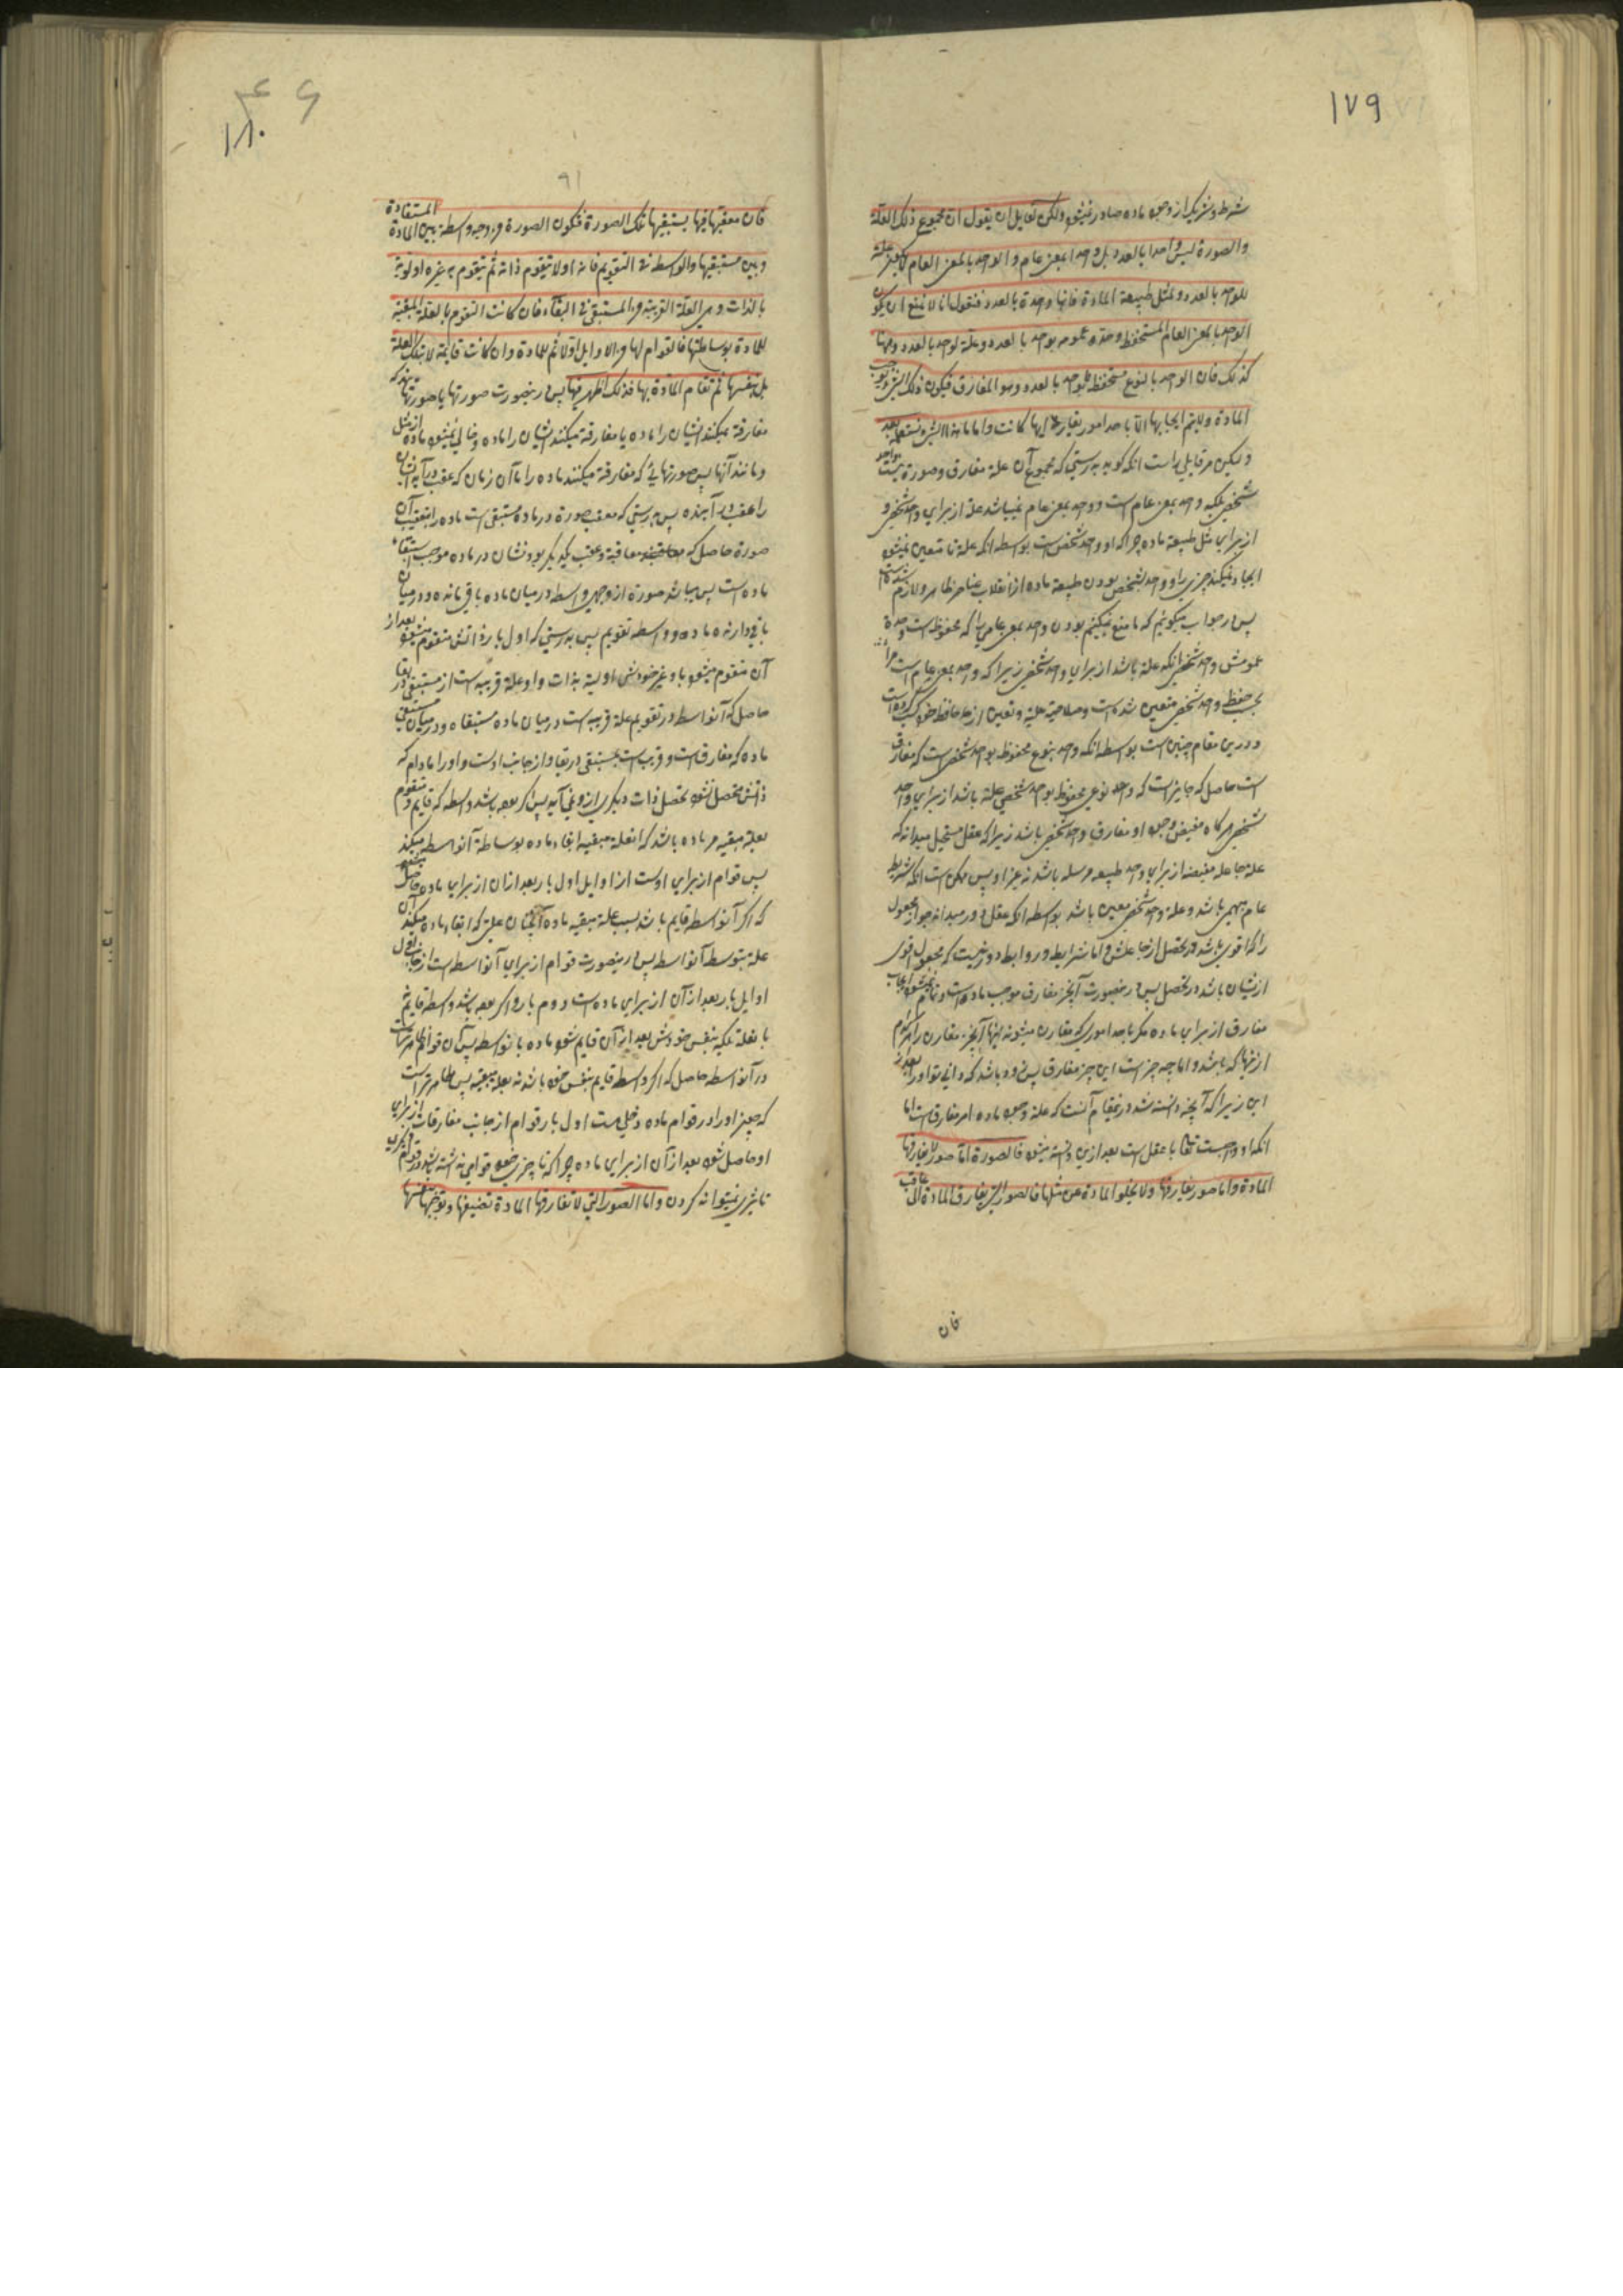 ١٧٩
شرط و شریک از وجود ماده صادر نمیشود ولکن لقایل ان یقول ان مجموع ذلک العلة
والصورة لیس واحدا بالعدد بل واحدا بمعنی عام و الواحد بالمعنی العام لا یکون علة
للواحد بالعدد و لمثل طبیعة المادة فانها واحدة بالعدد فنقول انا لا نمنع ان یکون
الواحد بالمعنی العام المستحفظ وحدة عمومه بواحد بالعدد و علة لواحد بالعدد و ههنا
کذلک فان الواحد بالنوع مستحفظ بواحد بالعدد و هو المفارق فیکون ذلک الشیء یوجب
المادة و لا یتم ایجابها الا باحد امور یقارنه ایها کانت و اما ما هذا الشیء فستعلمه بعد
ولیکن مر قایلی راست انکه گوید بدرستی که مجموع آن علة مفارق و صورة نیست واحد
شخصی بلکه واحد بمعنی عام است و واحد بمعنی عام نمیباشد علة از برای واحد شخصی و
از برای مثل طبیعة ماده چرا که او واحد شخصی است بواسطه انکه علة تا متعین نمیشود
ایجاد نمیکند چیزی را و واحد بشخص بودن طبیعة ماده از انقلاب عناصر ظاهر و لازم
پس در جواب میگوئیم که ما منع نمیکنیم بودن واحد بمعنی عامی را که محفوظ است وحدة
عمومش بواحد شخصی انکه علة باشد از برای واحد شخصی زیرا که واحد بمعنی عام است
بحسب حفظ واحد شخصی متعین شده است و صلاحیة علیة و تعین از حافظ خود کسب کرده است
و درین مقام چنین است بواسطه انکه واحد بنوع محفوظ بواحد شخصی است که مفارق
است حاصل که جایز است که واحد نوعی محفوظ بواحد شخصی علة باشد از برای واحد
شخصی هر گاه مفیض وجود او مفارق واحد شخصی باشد زیرا که عقل مستحیل میداند که
علة جاعله مفیضه از برای واحد طبیعه مرسله باشد نه غیر او پس ممکن است انکه شریط
عام مبهمی باشد و علة واحد شخصی معین باشد بواسطه انکه عقل دور میداند جواز مجعول
را که اقوی باشد در تحصل از جاعلش و اما شرایط و روابط دور نیست که مجعول اقوی
ازیشان باشد در تحصل پس درینصورت آنچیز مفارق موجب ماده است و تمام نمیشود ایجاب
مفارق از برای ماده مگر باحد اموری که مقارن میشوند اینها آنچیز مفارق را هر کدام
ازینها که باشد و اما چه چیز است این چیز مفارق پس زود باشد که دانی تو او را بعد از
این زیرا که آنچه دانسته شد درینمقام آنست که علة وجود ماده امر مفارق است اما
انکه او واجبست تعالی یا عقل است بعد ازین دانسته میشود فالصورة اما صور لا یفارقها
المادة و اما صور یفارقها ولا یخلو المادة عن مثلها فالصور التی یفارق المادة الی عاقب
فان
۴۶
١٨٠
٩١
فان معقبها فیها یستبقیها تلک الصورة فیکون الصورة من وجه واسطة بین المادة المستفادة
و بین مستبقیها والواسطة فی التقویم فانه اولا یتقوم ذاته ثم یتقوم به غیره اولویة
بالذات و هی العلة القریبة من المستبقی فی البقاء فان کانت التقوم بالعلة المبقیة
للمادة بوساطتها فالقوام لها من الاوایل اولا ثم للمادة و ان کانت قایمة لا بتلک العلة
بل بنفسها ثم تقام المادة بها فذلک اظهر فیها پس درینصورت صورتها یا صورتهایند که
مفارقة نمیکند ایشان را ماده یا مفارقة میکند ایشان را ماده و خالی نمیشود ماده از مثل
و مانند آنها پس صورتهائی که مفارقة میکنند ماده را تا آن زمان که عقب در آید ایشان
را عقب در آینده پس بدرستی که معقب صورة در ماده مستبقی است ماده را بتعقیب آن
صورة حاصل که معاقبة و عقب یکدیگر بودنشان در ماده موجب استبقاء
ماده است پس میباشد صورة از وجهی واسطه در میان ماده باقی مانده و در میان
باقی دارنده ماده و واسطه تقویم پس بدرستی که اول بار ذاتش متقوم میشود بعد از
آن متقوم میشود باو غیر خودش اولیة بذات و او علة قریبه است از مستبقی در بقا
حاصل که آنواسطه در تقویم علة قریبه است در میان ماده مستبقاه و در میان مستبقی
ماده که مفارق است و قریب است بمستبقی در بقا و از جانب اوست و او را مادام که
ذاتش متحصل نشود تحصل ذات دیگری ازو نمی آید پس اگر بوده باشد واسطه که قایم و متقوم
بعلة مبقیه مر ماده باشد که انعلة مبقیه ابقاء ماده بوساطة آنواسطه میکند
پس قوام از برای اوست از اوایل اول بار بعد ازان از برای ماده حاصل
که اگر آنواسطه قایم باشد بسبب علة مبقیه ماده آنچنان علتی که ابقاء ماده میکند آن
علة بتوسط آنواسطه پس درینصورت قوام از برای آنواسطه است از جانب اول
اوایل بار بعد از آن از برای ماده است دوم بار و اگر بوده باشد واسطه قایم نه
بانعلة بلکه بنفس خودش بعد از آن قایم شود ماده بانواسطه پس آن قوام ظاهرتر است
در آنواسطه حاصل که اگر واسطه قایم بنفس خود باشد نه بعلة مبقیه پس ظاهرتر است
که چیز او را در قوام ماده دخلی هست اول بار قوام از جانب مفارقات از برای
او حاصل شود بعد از آن از برای ماده چرا که تا چیزی خود قوامی نداشته باشد در قوام دیگری
تاثیری نمیتواند کردن و اما الصور التی لا تفارقها المادة